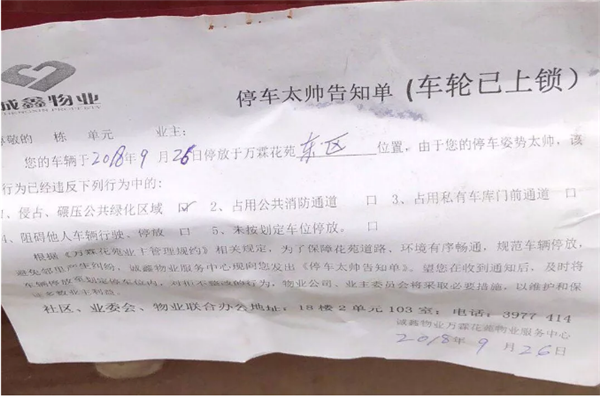 诚鑫物业
CHENGXIN PROPERTY
停车太帅告知单 (车轮已上锁)
尊敬的 栋 单元 业主:
您的车辆于2018年9月26日停放于万霖花苑东区位置,由于您的停车姿势太帅,该
行为已经违反下列行为中的:
1、侵占、碾压公共绿化区域 ☑ 2、占用公共消防通道 □ 3、占用私有车库门前通道 □
4、阻碍他人车辆行驶、停放 □ 5、未按划定车位停放。 □
根据《万霖花苑业主管理规约》相关规定,为了保障花苑道路、环境有序畅通,规范车辆停放,
避免邻里产生纠纷,诚鑫物业服务中心现向您发出《停车太帅告知单》。望您在收到通知后,及时将
车辆停放至划定停车位内,对拒不整改的行为,物业公司、业主委员会将采取必要措施,以维护和保
证多数业主利益。
社区、业委会、物业联合办公地址:18楼2单元103室;电话:3977 414
诚鑫物业万霖花苑物业服务中心
2018年9月26日